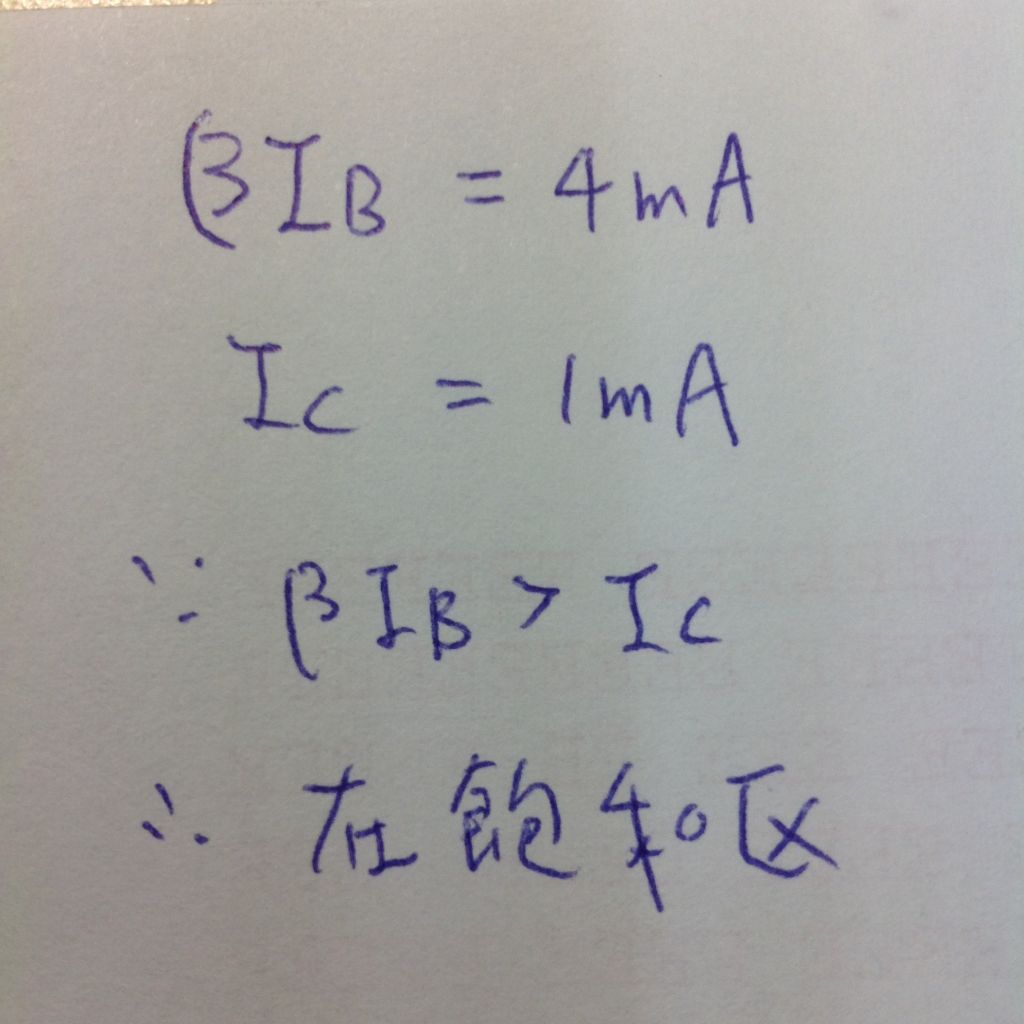 βIB = 4mA
IC = 1mA
∵ βIB > IC
∴ 在飽和区